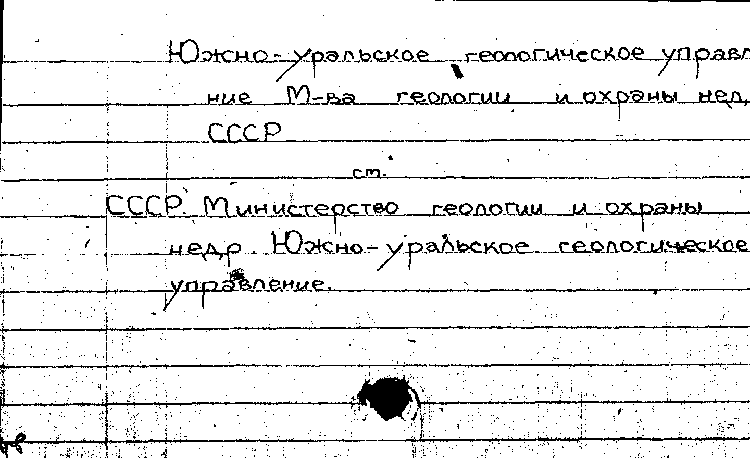 Южно-уральское геологическое управл
ние М-ва геологии и охраны нед
СССР
ст.
СССР Министерство геологии и охраны
недр. Южно-уральское геологическое
управление.